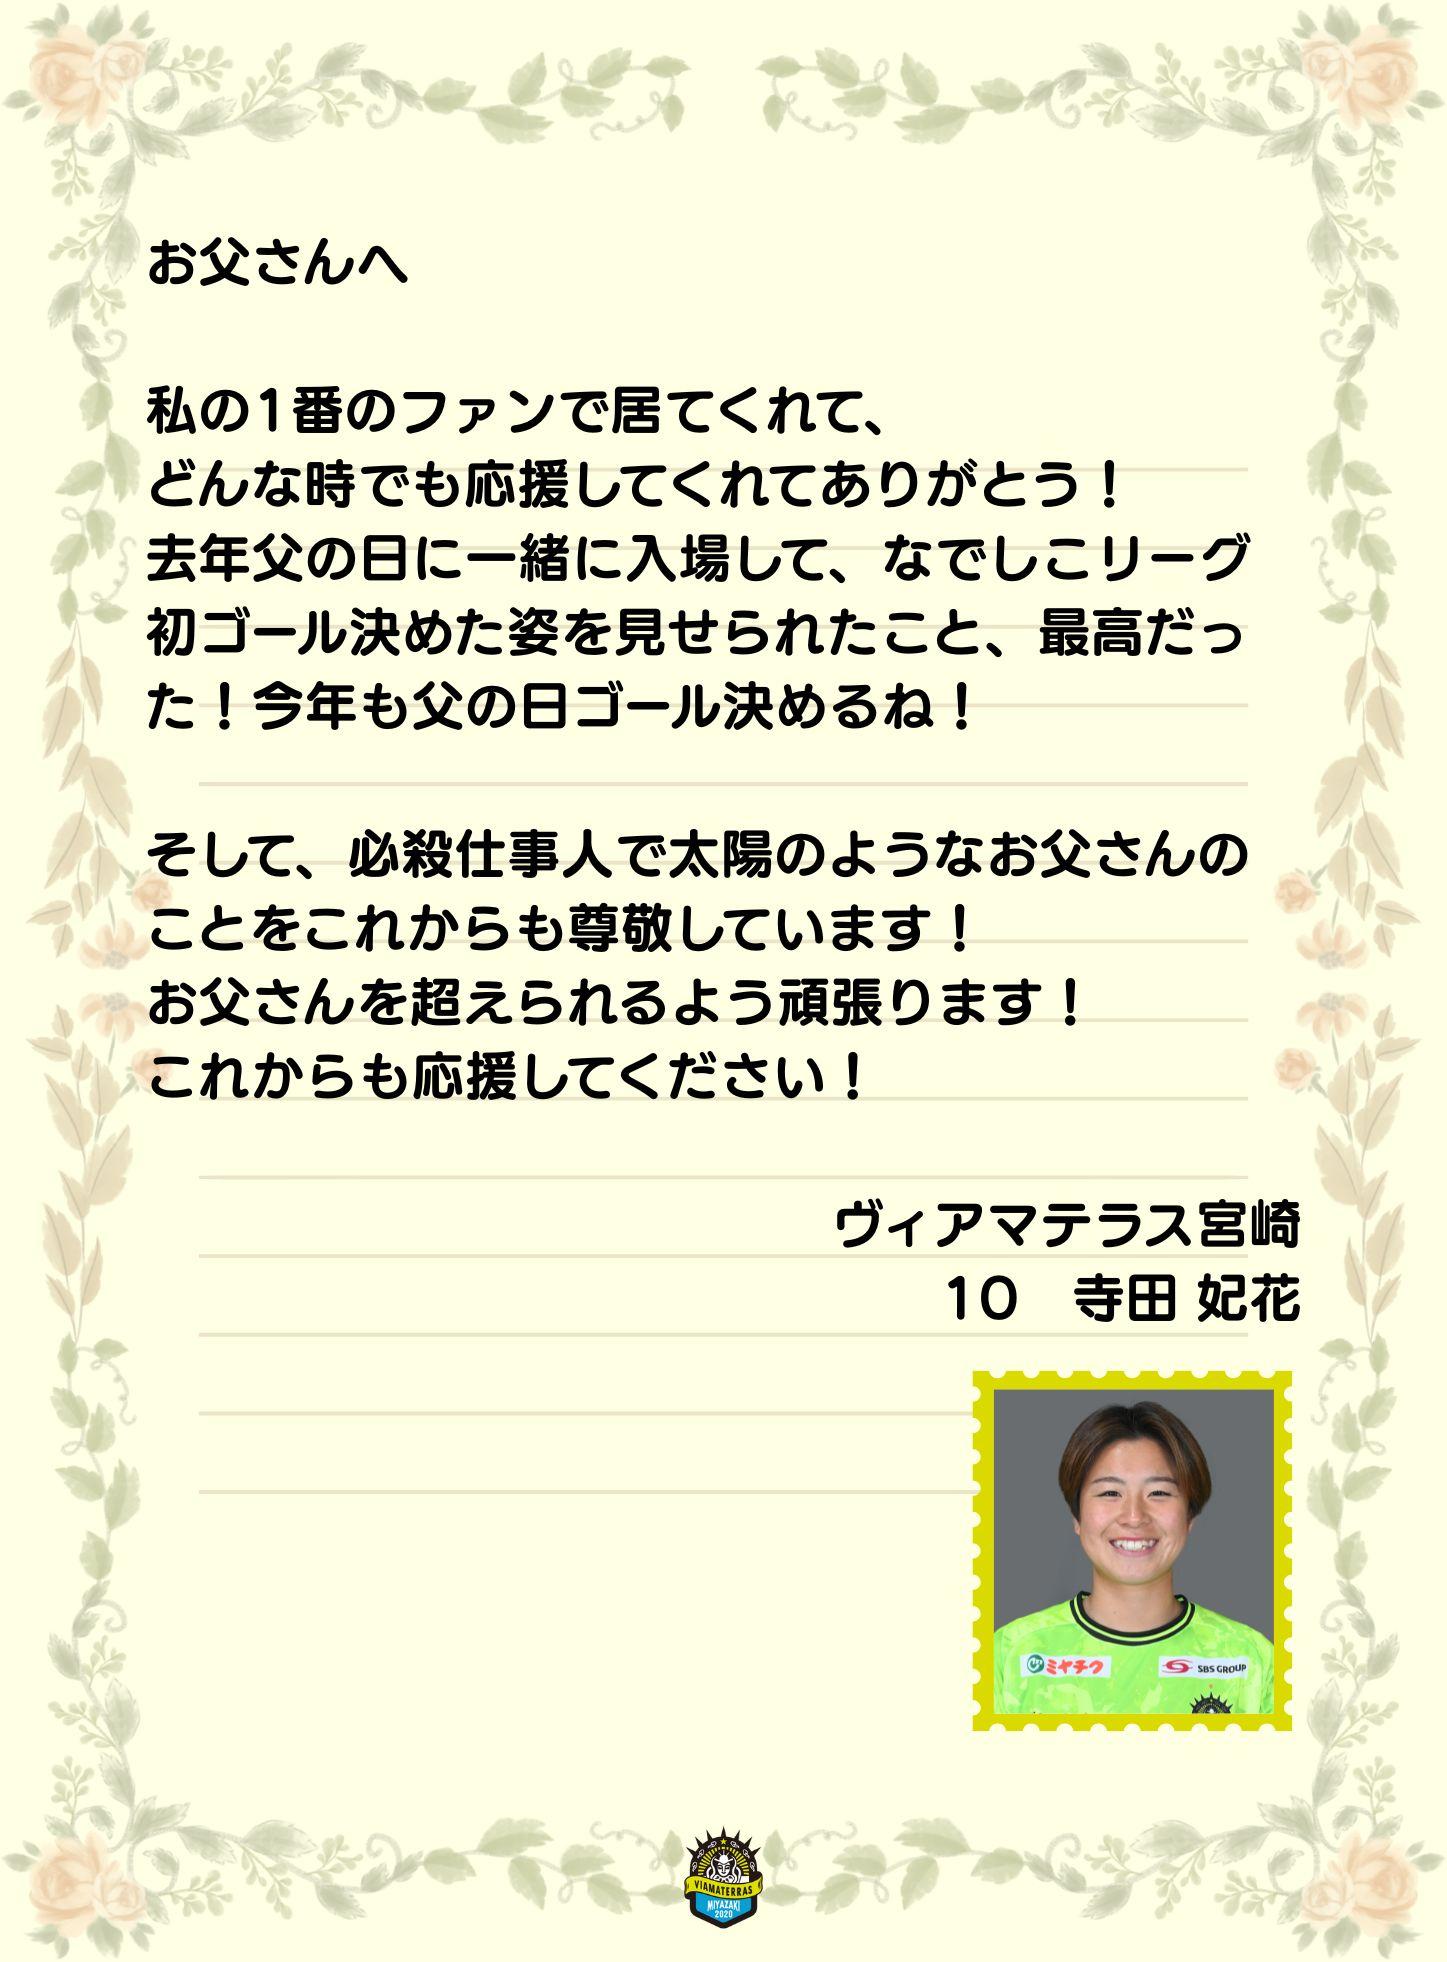 お父さんへ
私の1番のファンで居てくれて、
どんな時でも応援してくれてありがとう！
去年父の日に一緒に入場して、なでしこリーグ
初ゴール決めた姿を見せられたこと、最高だっ
た！今年も父の日ゴール決めるね！
そして、必殺仕事人で太陽のようなお父さんの
ことをこれからも尊敬しています！
お父さんを超えられるよう頑張ります！
これからも応援してください！
ヴィアマテラス宮崎
10　寺田 妃花
ミヤチク
SBS GROUP
VIAMATERRAS
MIYAZAKI
2020